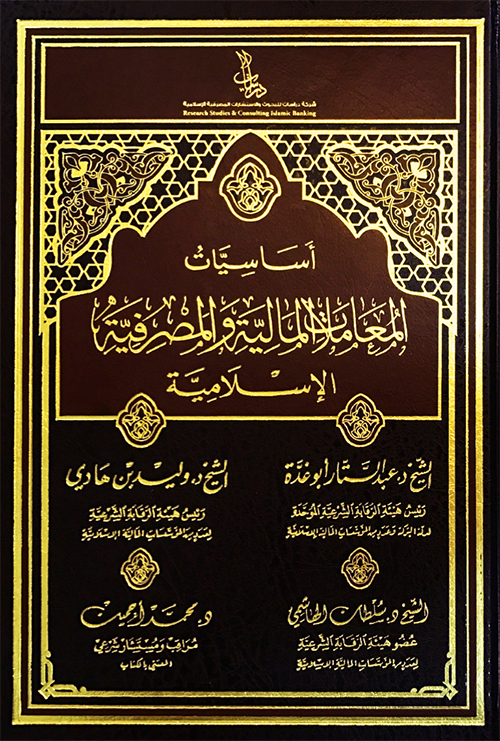 دراسات
شركة دراسات للبحوث والاستشارات المصرفية الإسلامية
Research Studies & Consulting Islamic Banking
أَسَاسِيَّاتُ
المُعَامَلَاتِ المَالِيَّةِ وَالمَصْرِفِيَّةِ
الإِسْلَامِيَّةِ
الشيخ د. عبد الستار أبو غدة
رئيس هيئة الرقابة الشرعية الموحدة
لدلة البركة وعدد من المؤسسات المالية الإسلامية
الشيخ د. وليد بن هادي
رئيس هيئة الرقابة الشرعية
لعدد من المؤسسات المالية الإسلامية
الشيخ د. سلطان الهاشمي
عضو هيئة الرقابة الشرعية
لعدد من المؤسسات المالية الإسلامية
د. محمد أحمين
مراقب ومستشار شرعي
المعتني بالكتاب